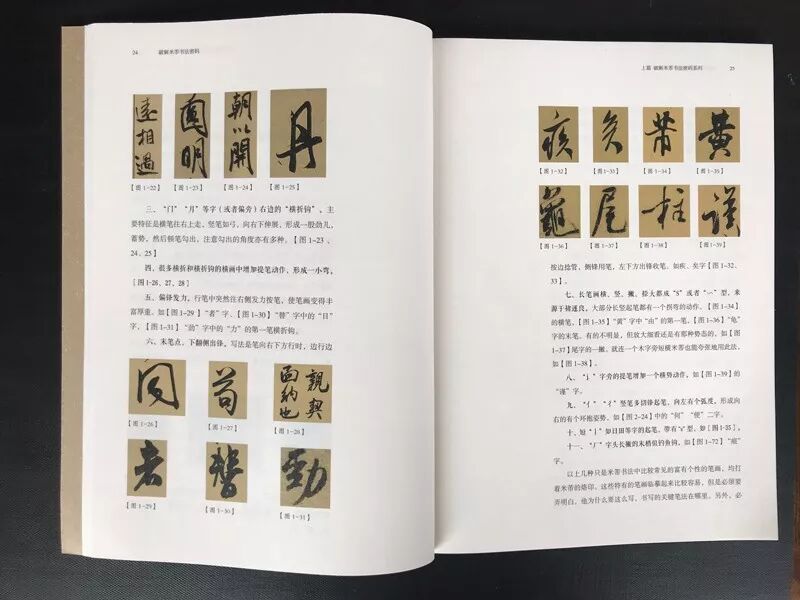 24 破解米芾书法密码
遠相過
圓明
朝以開
丹
【图 1-22】
【图 1-23】
【图 1-24】
【图 1-25】
三、“门”“月”等字（或者偏旁）右边的“横折钩”，主
要特征是横笔往右上走，竖笔如弓，向右下伸展，形成一股劲儿，
蓄势，然后顿笔勾出，注意勾出的角度亦有多种。【图 1-23 、
24、25】
四、很多横折和横折钩的横画中增加提笔动作，形成一小弯，
[图 1-26、27、28]
五、偏锋发力，行笔中突然往右侧发力按笔，使笔画变得丰
富厚重。如【图 1-29】“者”字、【图 1-30】“替”字中的“日”
字、【图 1-31】“劲”字中的“力”的第一笔横折钩。
六、末笔点、下翻侧出锋，写法是笔向右下方行时，边行边
同
苟
親契
面納也
【图 1-26】
【图 1-27】
【图 1-28】
者
替
勁
【图 1-29】
【图 1-30】
【图 1-31】
上篇 破解米芾书法密码系列 25
疾
矣
芾
黄
【图 1-32】
【图 1-33】
【图 1-34】
【图 1-35】
龜
尾
柱
謹
【图 1-36】
【图 1-37】
【图 1-38】
【图 1-39】
按边捻管，侧锋用笔，左下方出锋收笔。如疾、矣字【图 1-32、
33】。
七、长笔画横、竖、撇、捺大都成“S”或者“～”型，来
源于褚遂良，大部分长竖起笔都有一个拐弯的动作。【图 1-34】
的横笔，【图 1-35】“黄”字中“由”的第一笔，【图 1-36】“龟”
字的末笔。有的不明显，但放大细看还是有那种势态的。如【图
1-37】尾字的一撇。就连一个木字旁短横米芾也能夸张地用此法，
如【图 1-38】。
八、“讠”字旁的提笔增加一个横势动作，如【图 1-39】的
“谨”字。
九、“亻”“彳”竖笔多切锋起笔，向左有个弧度，形成向
右的有个环抱姿势，如【图 2-24】中的“何”“使”二字。
十、短“丨”如日田等字的起笔，带有“s”型，如 [图 1-35]。
十一、“厂”字头长撇的末梢似钓鱼钩，如【图 1-72】“痕”
字。
以上几种只是米芾书法中比较常见的富有个性的笔画，均打
着米芾的烙印。这些特有的笔画临摹起来比较容易，但是必须要
弄明白，他为什么要这么写，书写的关键笔法在哪里。另外，必